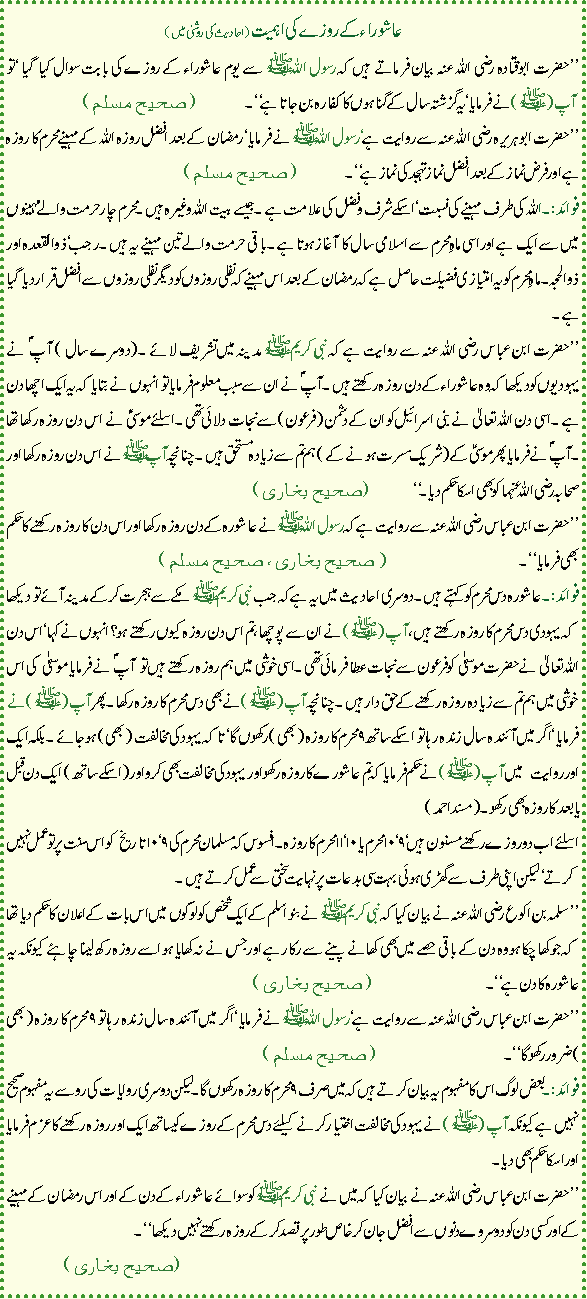 عاشوراء کے روزے کی اہمیت (احادیث کی روشنی میں)
’’حضرت ابوقتادہ رضی اللہ عنہ بیان فرماتے ہیں کہ رسول اللہ ﷺ سے یوم عاشوراء کے روزے کی بابت سوال کیا گیا ‘تو
آپ (ﷺ) نے فرمایا ‘یہ گزشتہ سال کے گناہوں کا کفارہ بن جاتا ہے‘‘۔ (صحیح مسلم)
’’حضرت ابوہریرہ رضی اللہ عنہ سے روایت ہے‘ رسول اللہ ﷺ نے فرمایا ‘رمضان کے بعد افضل روزہ اللہ کے مہینے محرم کا روزہ
ہے اور فرض نماز کے بعد افضل نماز تہجد کی نماز ہے‘‘۔ (صحیح مسلم)
فوائد:۔ اللہ کی طرف مہینے کی نسبت‘ اسکے شرف و فضل کی علامت ہے۔ جیسے بیت اللہ وغیرہ ہیں۔ محرم چار حرمت والے مہینوں
میں سے ایک ہے اور اسی ماہِ محرم سے اسلامی سال کا آغاز ہوتا ہے۔ باقی حرمت والے تین مہینے یہ ہیں۔ رجب‘ ذوالقعدہ اور
ذوالحجہ۔ ماہِ محرم کو یہ امتیازی فضیلت حاصل ہے کہ رمضان کے بعد اس مہینے کے نفلی روزوں کو دیگر نفلی روزوں سے افضل قرار دیا گیا
ہے۔
’’حضرت ابن عباس رضی اللہ عنہ سے روایت ہے کہ نبی کریم ﷺ مدینہ میں تشریف لائے۔ (دوسرے سال) آپؐ نے
یہودیوں کو دیکھا کہ وہ عاشوراء کے دن روزہ رکھتے ہیں۔ آپؐ نے ان سے سبب معلوم فرمایا تو انہوں نے بتایا کہ یہ ایک اچھا دن
ہے۔ اسی دن اللہ تعالیٰ نے بنی اسرائیل کو ان کے دشمن (فرعون) سے نجات دلائی تھی۔ اسلئے موسیٰؑ نے اس دن روزہ رکھا تھا
۔ آپؐ نے فرمایا پھر موسیٰؑ کے (شریک مسرت ہونے کے) ہم تم سے زیادہ مستحق ہیں۔ چنانچہ آپ ﷺ نے اس دن روزہ رکھا اور
صحابہ رضی اللہ عنہما کو بھی اسکا حکم دیا۔‘‘ (صحیح بخاری)
’’حضرت ابن عباس رضی اللہ عنہ سے روایت ہے کہ رسول اللہ ﷺ نے عاشورہ کے دن روزہ رکھا اور اس دن کا روزہ رکھنے کا حکم
بھی فرمایا‘‘۔ (صحیح بخاری ، صحیح مسلم)
فوائد:۔ عاشورہ دس محرم کو کہتے ہیں۔ دوسری احادیث میں یہ ہے کہ جب نبی کریم ﷺ مکے سے ہجرت کر کے مدینہ آئے تو دیکھا
کہ یہودی دس محرم کا روزہ رکھتے ہیں، آپ (ﷺ) نے ان سے پوچھا ہم اس دن روزہ کیوں رکھتے ہو؟ انہوں نے کہا ‘اس دن
اللہ تعالیٰ نے حضرت موسیٰؑ کو فرعون سے نجات عطا فرمائی تھی۔ اسی خوشی میں ہم روزہ رکھتے ہیں تو آپؐ نے فرمایا موسیٰؑ کی اس
خوشی میں ہم تم سے زیادہ روزہ رکھنے کے حق دار ہیں۔ چنانچہ آپ (ﷺ) نے بھی دس محرم کا روزہ رکھا۔ پھر آپ (ﷺ) نے
فرمایا ‘اگر میں آئندہ سال زندہ رہا تو اسکے ساتھ ۹ محرم کا روزہ (بھی) رکھوں گا‘ تا کہ یہود کی مخالفت (بھی) ہو جائے۔ بلکہ ایک
اور روایت میں آپ (ﷺ) نے حکم فرمایا کہ تم عاشورے کا روزہ رکھو اور یہود کی مخالفت بھی کرو اور (اسکے ساتھ) ایک دن قبل
یا بعد کا روزہ بھی رکھو۔ (مسند احمد)
اسلئے اب دو روزے رکھنے مسنون ہیں‘ ۹‘۱۰ محرم یا ۱۰‘۱۱ محرم کا روزہ۔ افسوس کہ مسلمان محرم کی ۹‘۱۰ تاریخ کو اس سنت پر تو عمل نہیں
کرتے‘ لیکن اپنی طرف سے گھڑی ہوئی بہت سی بدعات پر نہایت سختی سے عمل کرتے ہیں۔
’’سلمہ بن اکوع رضی اللہ عنہ نے بیان کیا کہ نبی کریم ﷺ نے بنو اسلم کے ایک شخص کو لوگوں میں اس بات کے اعلان کا حکم دیا تھا
کہ جو کھا چکا ہو وہ دن کے باقی حصے میں بھی کھانے پینے سے رکا رہے اور جس نے نہ کھایا ہو اسے روزہ رکھ لینا چاہئے کیونکہ یہ
عاشورہ کا دن ہے‘‘۔ (صحیح بخاری)
’’حضرت ابن عباس رضی اللہ عنہ سے روایت ہے‘ رسول اللہ ﷺ نے فرمایا ‘اگر میں آئندہ سال زندہ رہا تو ۹ محرم کا روزہ (بھی
) ضرور رکھوگا‘‘۔ (صحیح مسلم)
فوائد:۔ بعض لوگ اس کا مفہوم یہ بیان کرتے ہیں کہ میں صرف ۹ محرم کا روزہ رکھوں گا۔ لیکن دوسری روایات کی رو سے یہ مفہوم صحیح
نہیں ہے کیونکہ آپ (ﷺ) نے یہود کی مخالفت اختیار کرنے کیلئے دس محرم کے روزے کیساتھ ایک اور روزہ رکھنے کا عزم فرمایا
اور اسکا حکم بھی دیا۔
’’حضرت ابن عباس رضی اللہ عنہ نے بیان کیا کہ میں نے نبی کریم ﷺ کو سوائے عاشوراء کے دن کے اور اس رمضان کے مہینے
کے اور کسی دن کو دوسرے دنوں سے افضل جان کر خاص طور پر قصد کر کے روزہ رکھتے نہیں دیکھا‘‘۔
(صحیح بخاری)